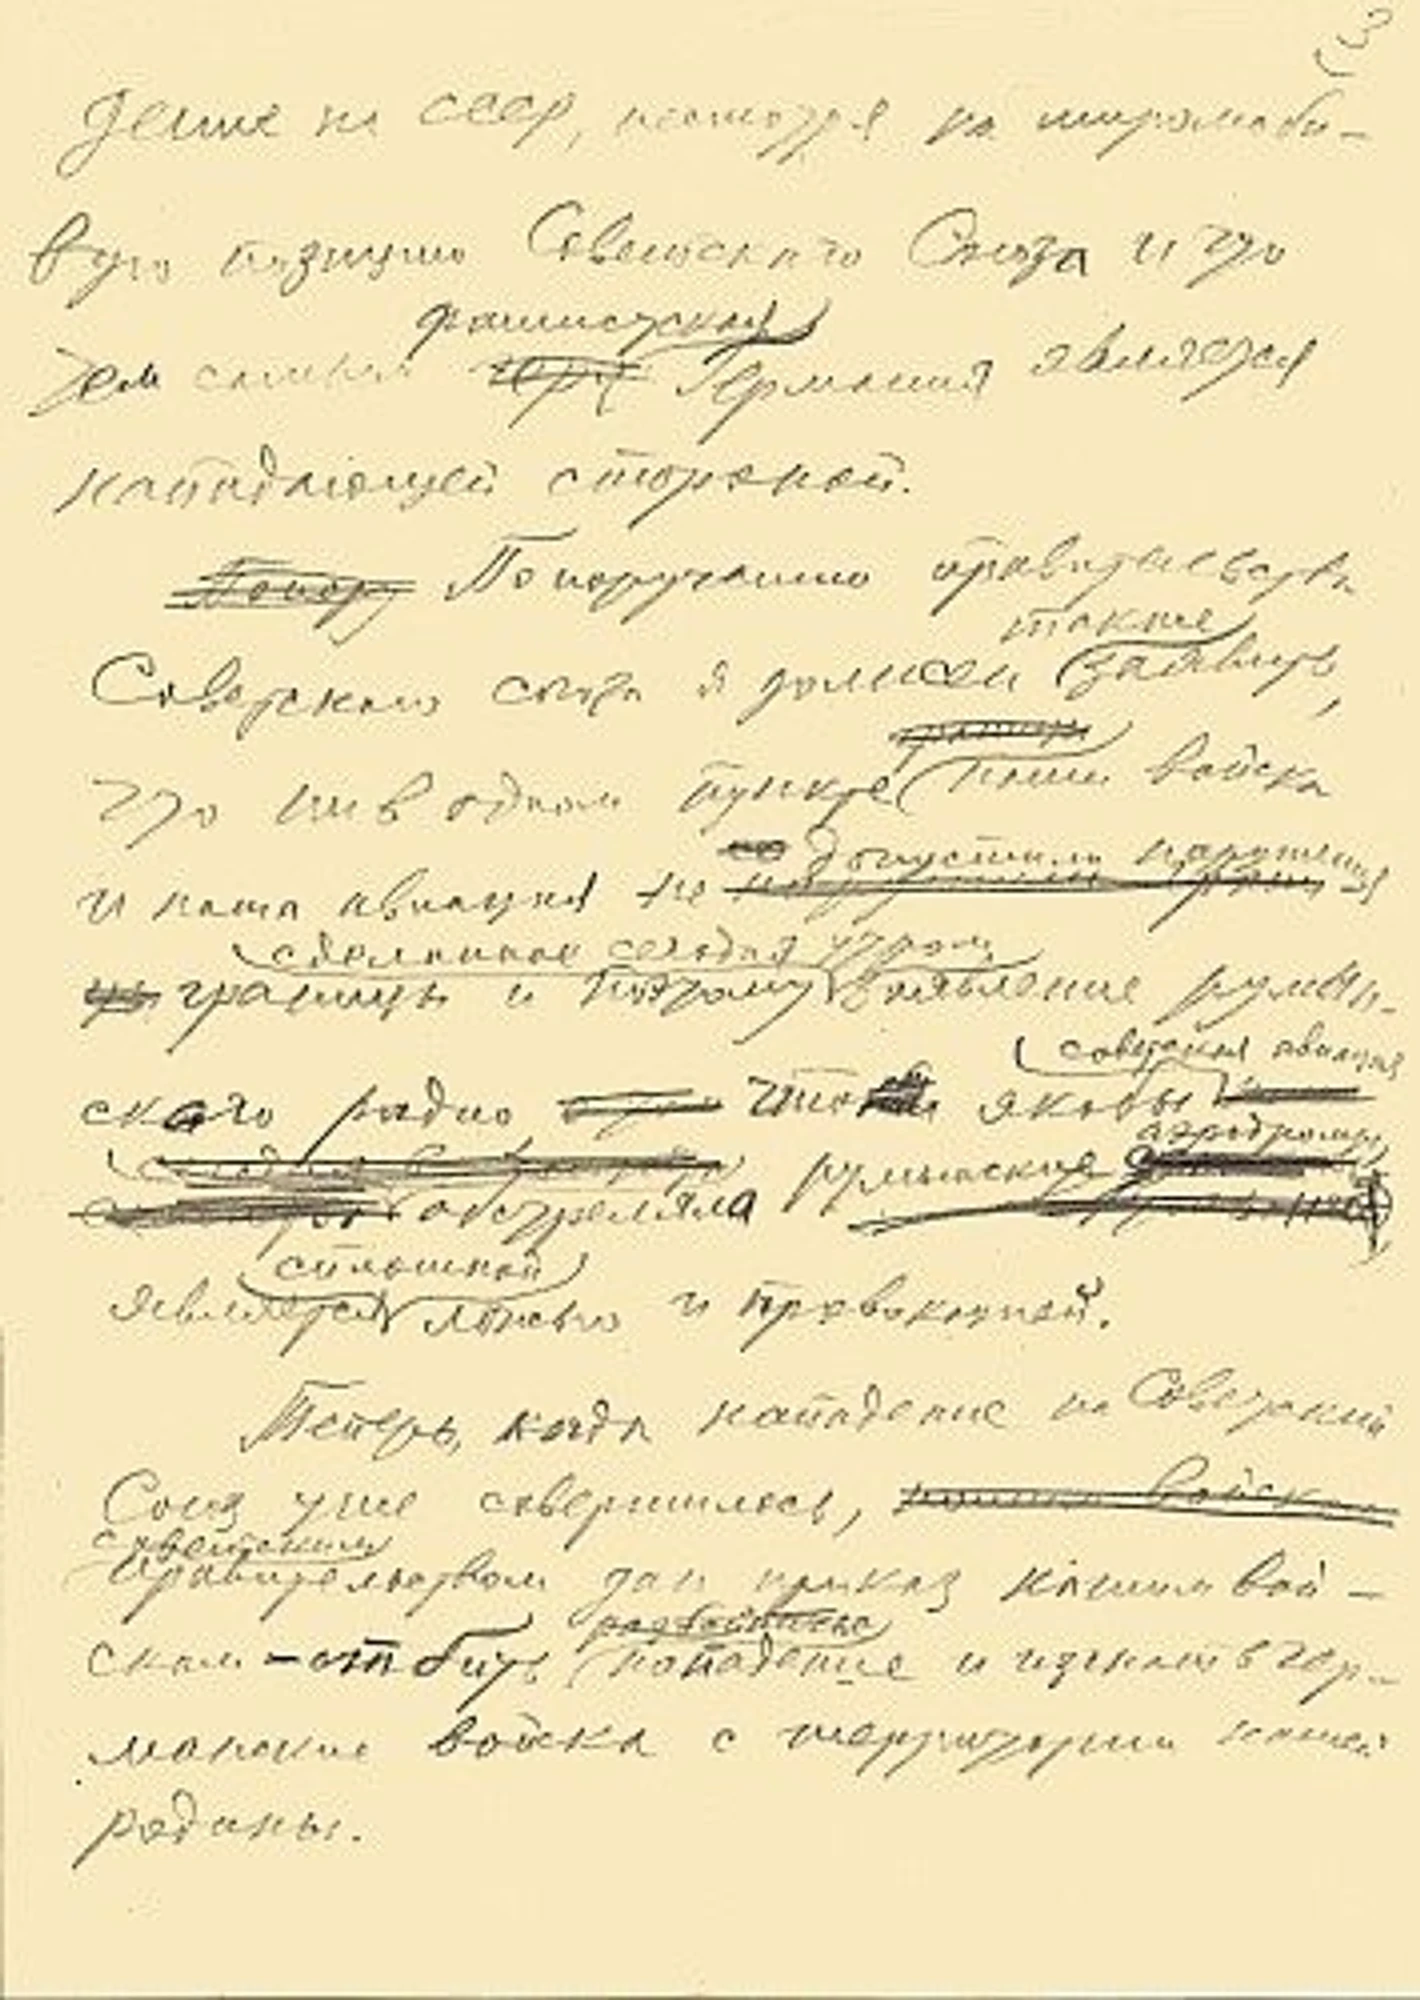 3
дение на СССР, несмотря на миролюби-
вую позицию Советского Союза и что
фашистская
тем самым Германия является
нападающей стороной.
По поручению правительства
также
Советского союза я должен заявить,
что ни в одном пункте наши войска
допустили нарушения
и наша авиация не
сделанное сегодня утром
границы и поэтому заявление румын-
советская авиация
ского радио что якобы
аэродромы,
обстреляла румынские
сплошной
является ложью и провокацией.
Теперь, когда нападение на Советский
Союз уже совершилось,
советским
Правительством дан приказ нашим вой-
разбойничье
скам - отбить нападение и изгнать гер-
манские войска с территории нашей
родины.